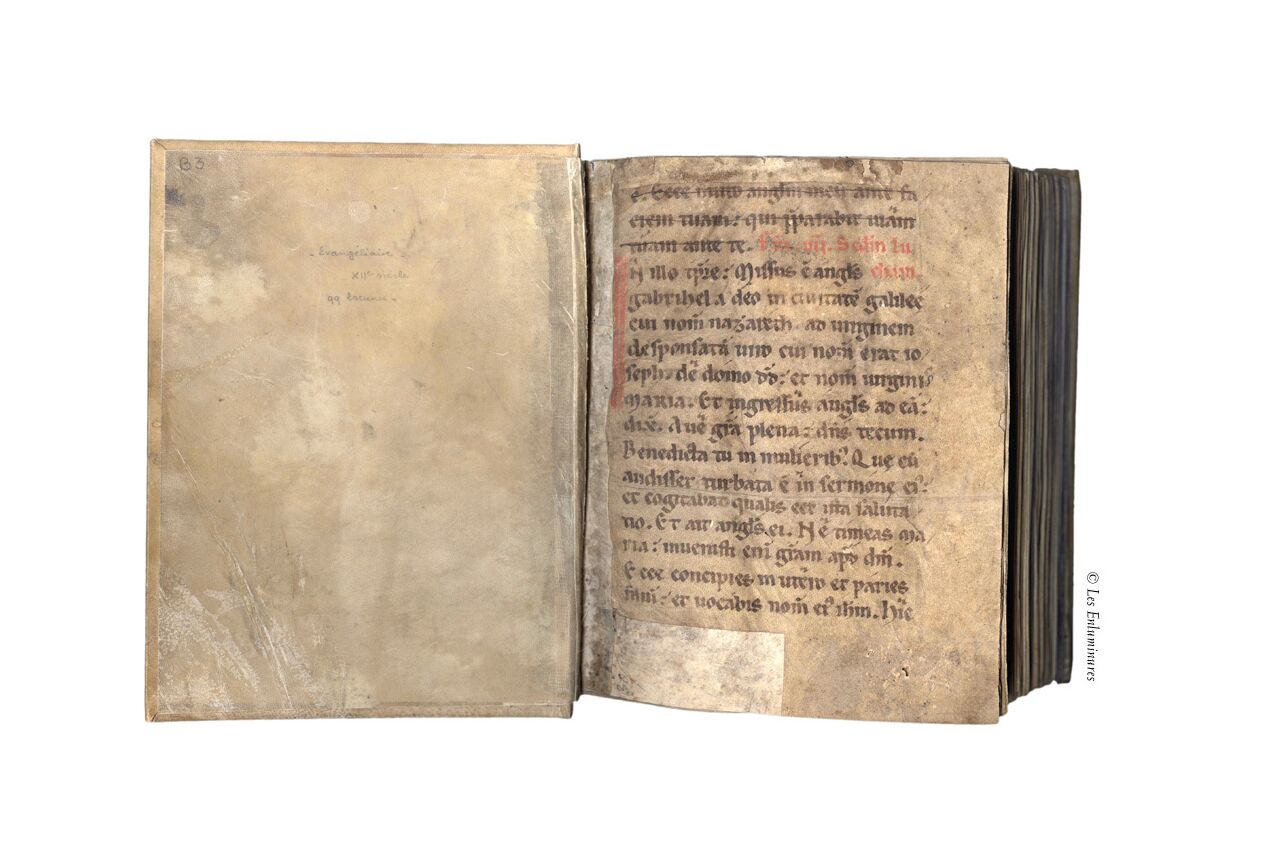 B3
- Evangéliaire -
XIIe siècle
99 lacunes -
e. Ecce mitto anglm meū ante fa
ciem tuam: qui p̄parabit uiam
tuam ante te. Fr̄a. iiij. Scdm lu
N illo tp̄re: Missus ē angls cham.
gabrihel a deo in ciuitatē galileę
cui nom̄ nazareth. ad uirginem
desponsatā uiro cui nom̄ erat io
seph. de domo dd̄: et nom̄ uirginis
MARIA. Et ingressus angls ad eā:
dix̄. Aue gr̄a plena: dn̄s tecum.
Benedicta tu in mulierib;. Que cū
audisset turbata ē in sermone ei⁹:
et cogitabat qualis eēt ista saluta
tio. Et ait angls ei. Ne timeas ma
ria: inuenisti eni gr̄am apd dm̄.
Ecce concipies in utero et paries
filiū: et uocabis nom̄ ei⁹ ihm. Hic
© Les Enluminures